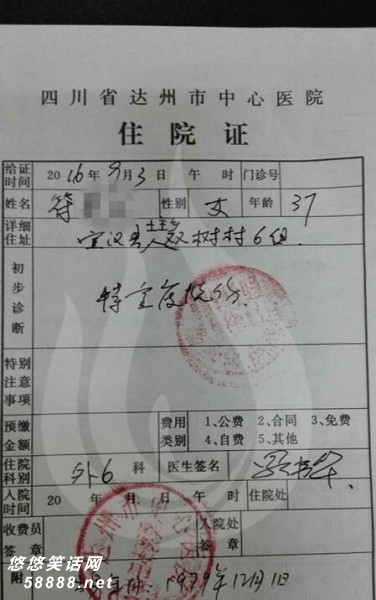 四川省达州市中心医院
住院证
给证时间 2016年9月3日 午 时 门诊号
姓名 符 性别 女 年龄 37
详细住址 宣汉县 双树村6组
初步诊断 特重度烧伤
特别注意事项
预缴金额 费用类别 1、公费 2、合同 3、免费 4、自费 5、其他
住院科别 外6科 医生签名
入院时间 20 年 月 日 午 时 住院处
收费员签章 入院处签章
附 1979年12月1日
悠悠笑话网
58888.net